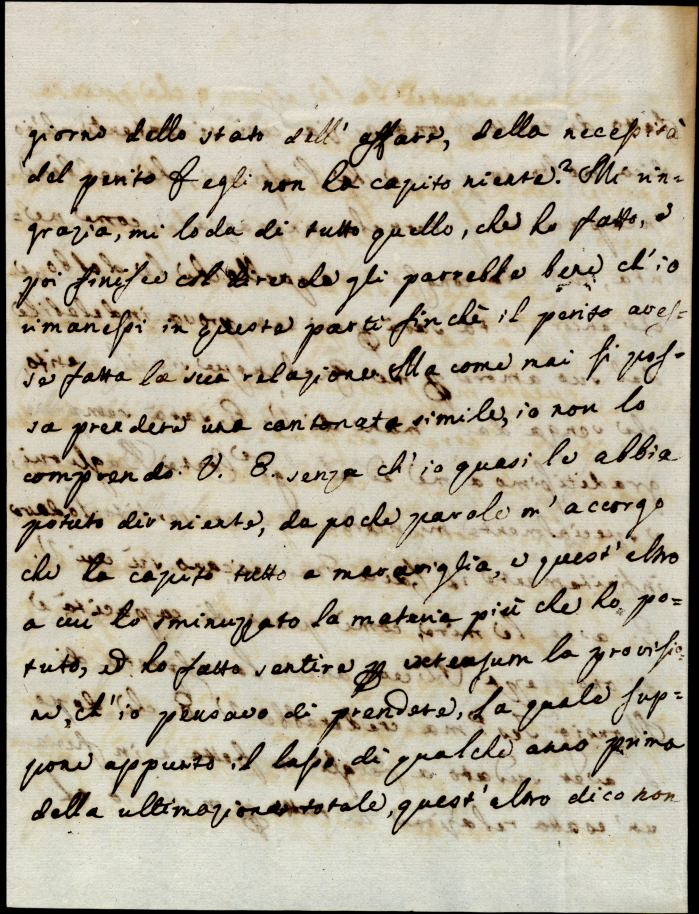 giorno dello stato dell' affare, della necessità
del perito & egli non ha capito niente? Mi rin=
grazia, mi loda di tutto quello, che ho fatto, e
poi finisce col dire che gli parrebbe bene ch' io
rimanessi in queste parti finchè il perito aves=
se fatta la sua relazione Ma come mai si pos=
sa prendere una cantonata simile, io non lo
comprendo. V. E. senza ch' io quasi le abbia
potuto dir niente, da poche parole m' accorgo
che ha capito tutto a maraviglia, e quest' altro
a cui ho sminuzzato la materia più che ho po=
tuto, ed ho fatto sentire per extensum la provisio=
ne, ch' io pensavo di prendere, la quale sup=
pone appunto il lapso di qualche anno prima
della ultimazione totale, quest' altro dico non